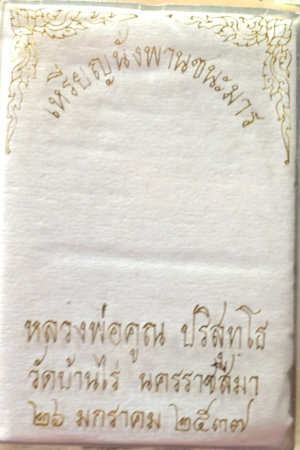 เหรียญนั่งพานชนะมาร
หลวงพ่อคูณ ปริสุทฺโธ
วัดบ้านไร่ นครราชสีมา
๒๖ มกราคม ๒๕๓๗